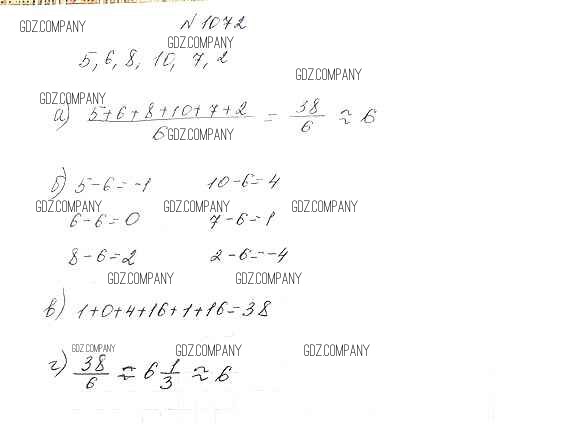 GDZ.COMPANY
N 1072
GDZ.COMPANY
5, 6, 8, 10, 7, 2
GDZ.COMPANY
GDZ.COMPANY
а) (5+6+8+10+7+2)/6 = 38/6 ≈ 6
GDZ.COMPANY
б) 5-6=-1 10-6=4
GDZ.COMPANY GDZ.COMPANY GDZ.COMPANY
6-6=0 7-6=1
8-6=2 2-6=-4
GDZ.COMPANY GDZ.COMPANY
в) 1+0+4+16+1+16=38
GDZ.COMPANY GDZ.COMPANY GDZ.COMPANY
г) 38/6 ≈ 6 1/3 ≈ 6